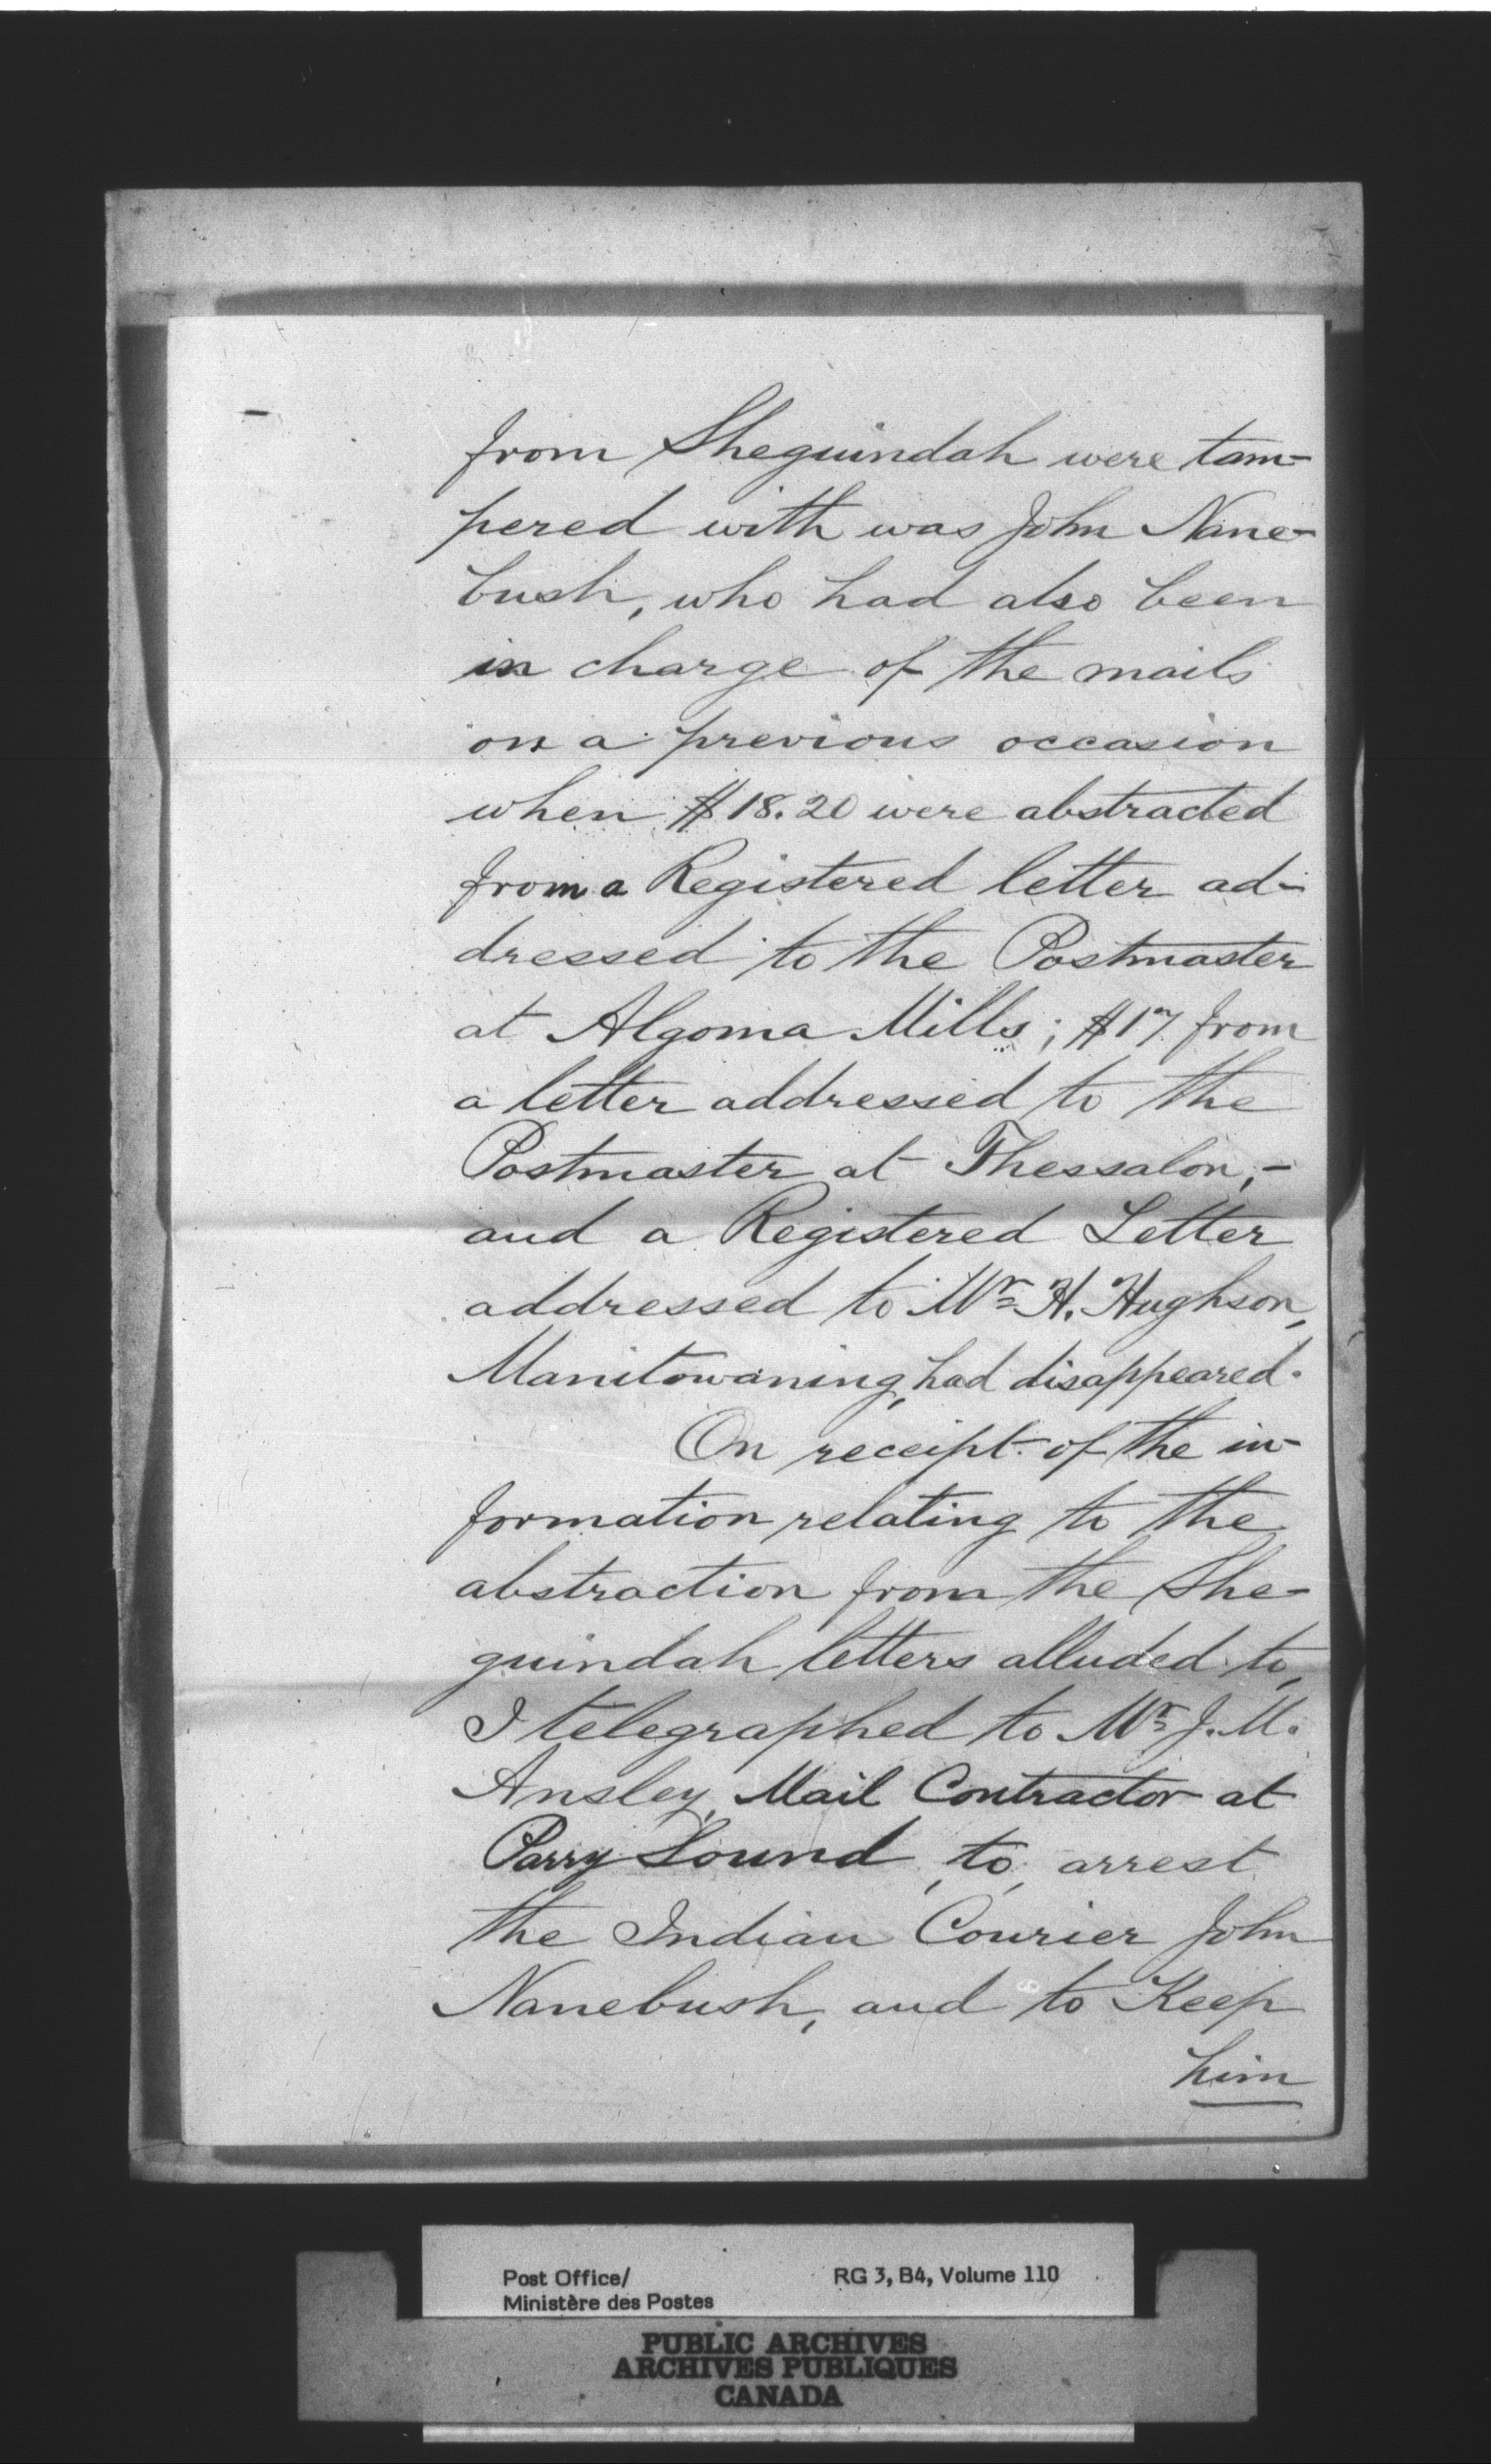 from Sheguindah were tam-
pered with was John Nane-
bush, who had also been
in charge of the mails
on a previous occasion
when $18.20 were abstracted
from a Registered letter ad-
dressed to the Postmaster
at Algoma Mills; $17 from
a letter addressed to the
Postmaster at Thessalon,-
and a Registered Letter
addressed to Mr H. Hughson,
Manitowaning, had disappeared.
On receipt of the in-
formation relating to the
abstraction from the She-
guindah letters alluded to,
I telegraphed to Mr J. M.
Ansley, Mail Contractor at
Parry Sound, to, arrest
the Indian Courier John
Nanebush, and to Keep
him
Post Office/ RG 3, B4, Volume 110
Ministère des Postes
PUBLIC ARCHIVES
ARCHIVES PUBLIQUES
CANADA